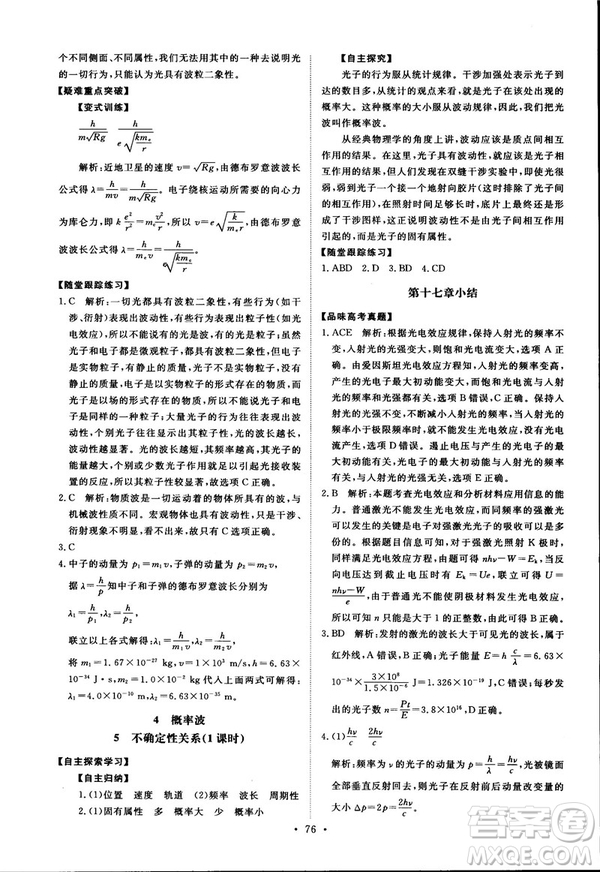 个不同侧面、不同属性，我们无法用其中的一种去说明光
的一切行为，只能说光具有波粒二象性。
【疑难重点突破】
【变式训练】
h/(m√Rg)　h/(e√(km_e/r))
解析：近地卫星的速度 v=√Rg，由德布罗意波波长
公式得 λ=h/mv=h/(m√Rg)。电子绕核运动的向心力
为库仑力，即 k e²/r²=m_e v²/r，v=e√(k/(m_e r))，由德布罗意
波波长公式得 λ=h/(m_e v)=h/(e√(km_e/r))。
【随堂跟踪练习】
1. C　解析：一切光都具有波粒二象性，光的有些行为(如
干涉、衍射)表现出波动性，有些行为(如
光电效应)表现出粒子性，
光子和电子都是微观粒子，都具有波粒二象性，但电子
是实物粒子，有静止质量，光子不是实物粒子，没有
静止质量，电子是以实物的形式存在的物质，光子是
以场的形式存在的物质，所以不能说光子
与电子是同样的一种粒子，光的
波粒二象性的理论和实验表明，大量光子的行为表现出
波动性，个别光子的行为表现出粒子性。光的波长越长，
波动性越显著，光的频率越高，粒子性越显著，光子的
能量越大，但不能说少数光子的行为没有波动性。故选
项C正确。
2. C　解析：物质波是一切运动的物体所具有的波，与
机械波性质不同。宏观物体也具有波动性，只是干涉、
衍射现象不明显，只有C正确。
3. C
4. 中子的动量为 p₁=m₁v，子弹的动量为 p₂=m₂v，
据 λ=h/p 知中子和子弹的德布罗意波长分别为
λ₁=h/p₁，λ₂=h/p₂
联立以上各式得：λ₁=h/(m₁v)，λ₂=h/(m₂v)
将 m₁=1.67×10⁻²⁷ kg，v=1×10³ m/s，h=6.63×
10⁻³⁴ J·s，m₂=1.0×10⁻² kg代入上面两式可解得
λ₁=4.0×10⁻¹⁰ m，λ₂=6.63×10⁻³⁵ m
4　概率波
5　不确定性关系(1课时)
【自主探索学习】
【自主归纳】
1. (1)位置　速度　轨道　(2)频率　波长　周期性
2. (1)固有属性　多　概率大　少　概率小
【自主探究】
光子的行为服从统计规律，干涉加强表示光子到
达的数目多，从统计的观点来看就是光子在该处出现
的概率大。这种概率的大小服从波动规律，因此我们把光
波叫作概率波。
从经典物理学的角度上讲，波动应是质点间相互
作用的结果。人们认为光子的波动性也应是光子间相
互作用的结果，但如果在双缝干涉实验中使光源强度很
弱，弱到光子只能一个一个地射向胶片(这时光子间
不可能有相互作用)，经过足够长时间，底片上最终还是
出现了干涉图样。这说明波动性不是由光子间的作用
引起的，是光子的固有属性。
【随堂跟踪练习】
1. ABD　2. D　3. D　4. CD
第十七章小结
【品味高考真题】
1. ACE　解析：根据光电效应规律，保持入射光的频率不
变，入射光的光强变大，则饱和光电流变大，选项A正
确。由爱因斯坦光电效应规律可知，入射光的频率变高，
产生的光电子最大初动能变大，而饱和光电流与入射光
的频率和光强都有关，选项B错误，C正确。保持入射光
的光强不变，不断减小入射光的频率，当入射光的频率
小于极限频率时，就不能发生光电效应，没有光电流产
生，选项D错误。遏止电压与产生的光电子的最大初动
能有关，光电子的最大初动能与入射光的频率有关，与
入射光的光强无关，选项E正确。
2. B　解析：本题考查光电效应和分析材料应用信息的能
力。普通激光不能使金属产生光电效应，而强激光能产
生，根据题目信息可知，原因是电子在强激光光子的照
射下吸收了多个光子的能量。用强激光照射K极时，一
个电子吸收n个光子，据光电效应方程有：nhν-W=E_k，
在反向电压作用下，当反向电压达到Ue=E_k时，即U=
(nhν-W)/e，由于普通光不能使阴极材料发生光电效应，
所以n只可能是大于1的正整数，由此可知，B正确。
3. BD　解析：发射的激光的波长大于可见光的波长，属于
红外线，A错误，B正确；光子能量 E=hν=h c/λ=6.63×
10⁻³⁴×(3×10⁸)/(1.5×10⁻⁶) J=1.326×10⁻¹⁹ J，C错误；每秒钟
发射的光子数，n=Pt/E=3.8×10¹⁶，D正确。
4. (1)hν/c　2hν/c
解析：频率为ν的光子的动量为hν/c，光被镜面
全部垂直反射后，光子动量方向改变，动量变化量的
大小为Δp=2hν/c，由于镜面受到的
76
答案圈
MXQE.COM